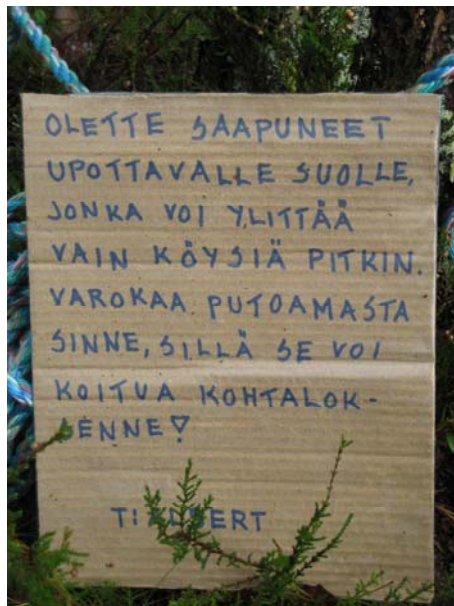 OLETTE SAAPUNEET
UPOTTAVALLE SUOLLE,
JONKA VOI YLITTÄÄ
VAIN KÖYSIÄ PITKIN.
VAROKAA PUTOAMASTA
SINNE, SILLÄ SE VOI
KOITUA KOHTALOK-
SENNE!
T: